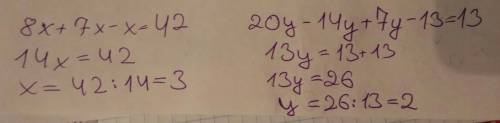 8x+7x-x=42
14x=42
x=42:14=3
20y-14y+7y-13=13
13y=13+13
13y=26
y=26:13=2